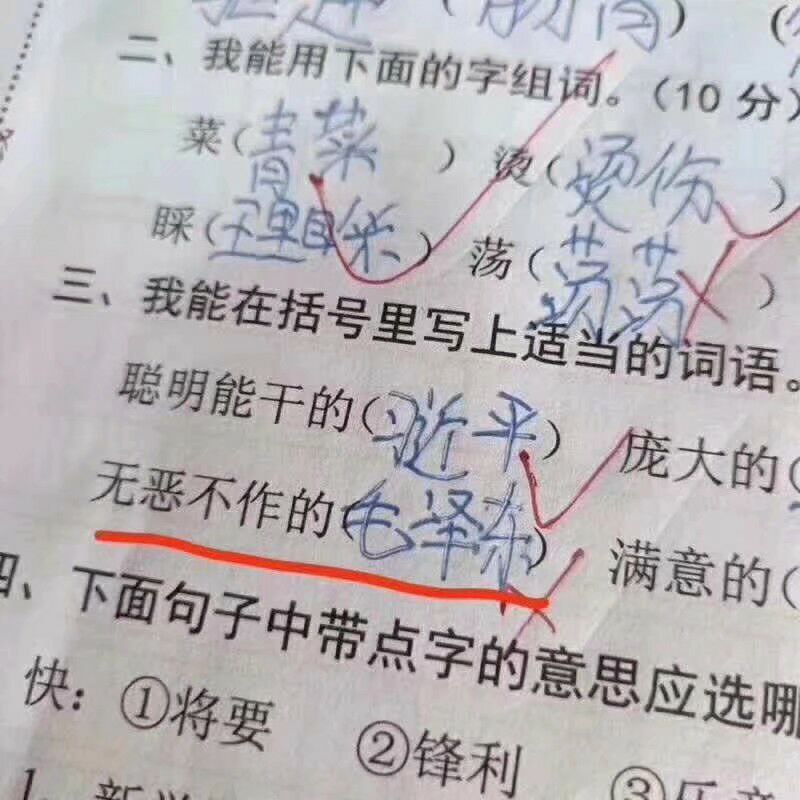 (肠胃)
二、我能用下面的字组词。(10分)
菜(青菜) 烫(烫伤)
睬(理睬) 荡(荡荡)
三、我能在括号里写上适当的词语。
聪明能干的(习近平) 庞大的(
无恶不作的(毛泽东) 满意的(
四、下面句子中带点字的意思应选哪
快:①将要 ②锋利 ③
1.